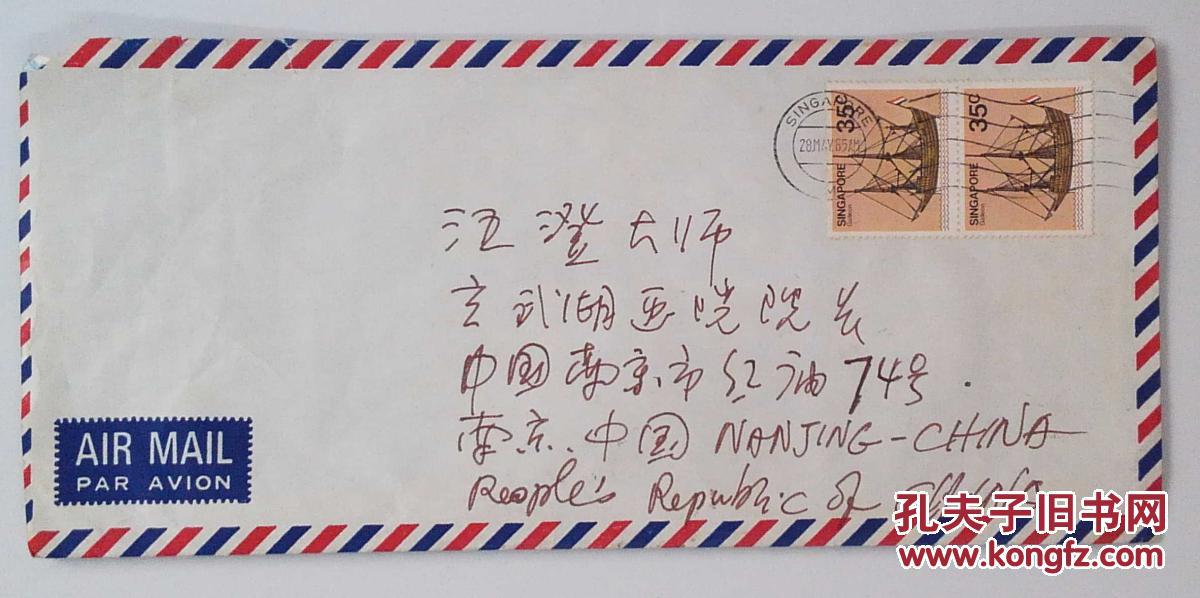 SINGAPORE
28 MAY 85 AM
35c
SINGAPORE
Galleon
35c
SINGAPORE
Galleon
汪澄大师
玄武湖医院院长
中國南京市红庙74号.
南京.中國 NANJING-CHINA
People's Republic of CHINA
AIR MAIL
PAR AVION
孔夫子旧书网
www.kongfz.com